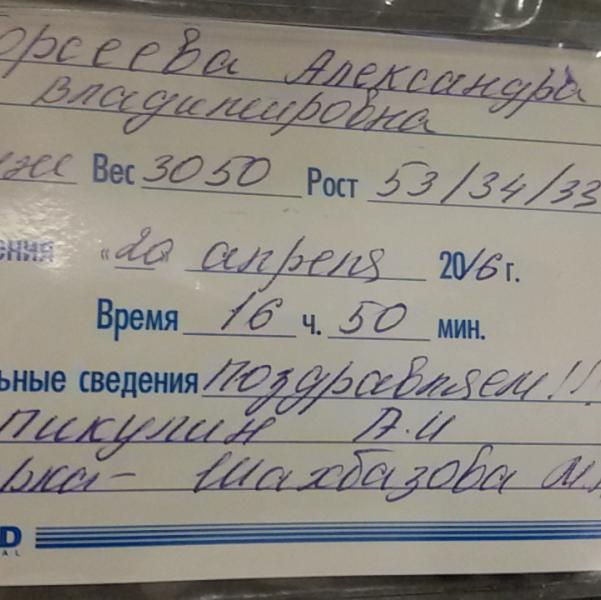 орсеева Александра
Владимировна
Вес 3050 Рост 53/34/33
ения «20» апреля 2016 г.
Время 16 ч. 50 мин.
ьные сведения поздравляем!!!
пикулин А.И
рка - Шахбазова
D
AL